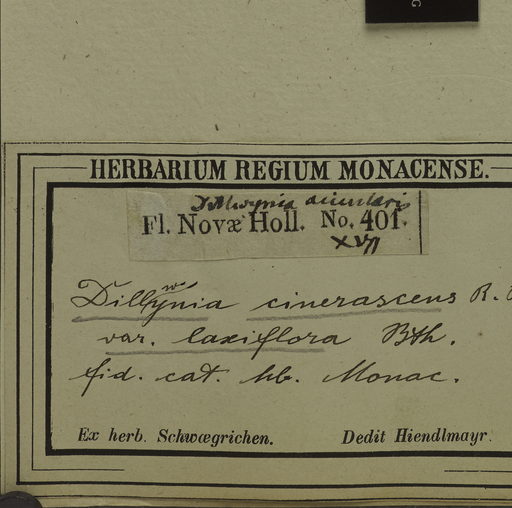 HERBARIUM REGIUM MONACENSE.
Dillwynia acicularis
Fl. Novæ Holl. No. 401.
XVII
Dillwynia cinerascens R.
var. laxiflora Bth.
fid. cat. hb. Monac.
Ex herb. Schwægrichen. Dedit Hiendlmayr.